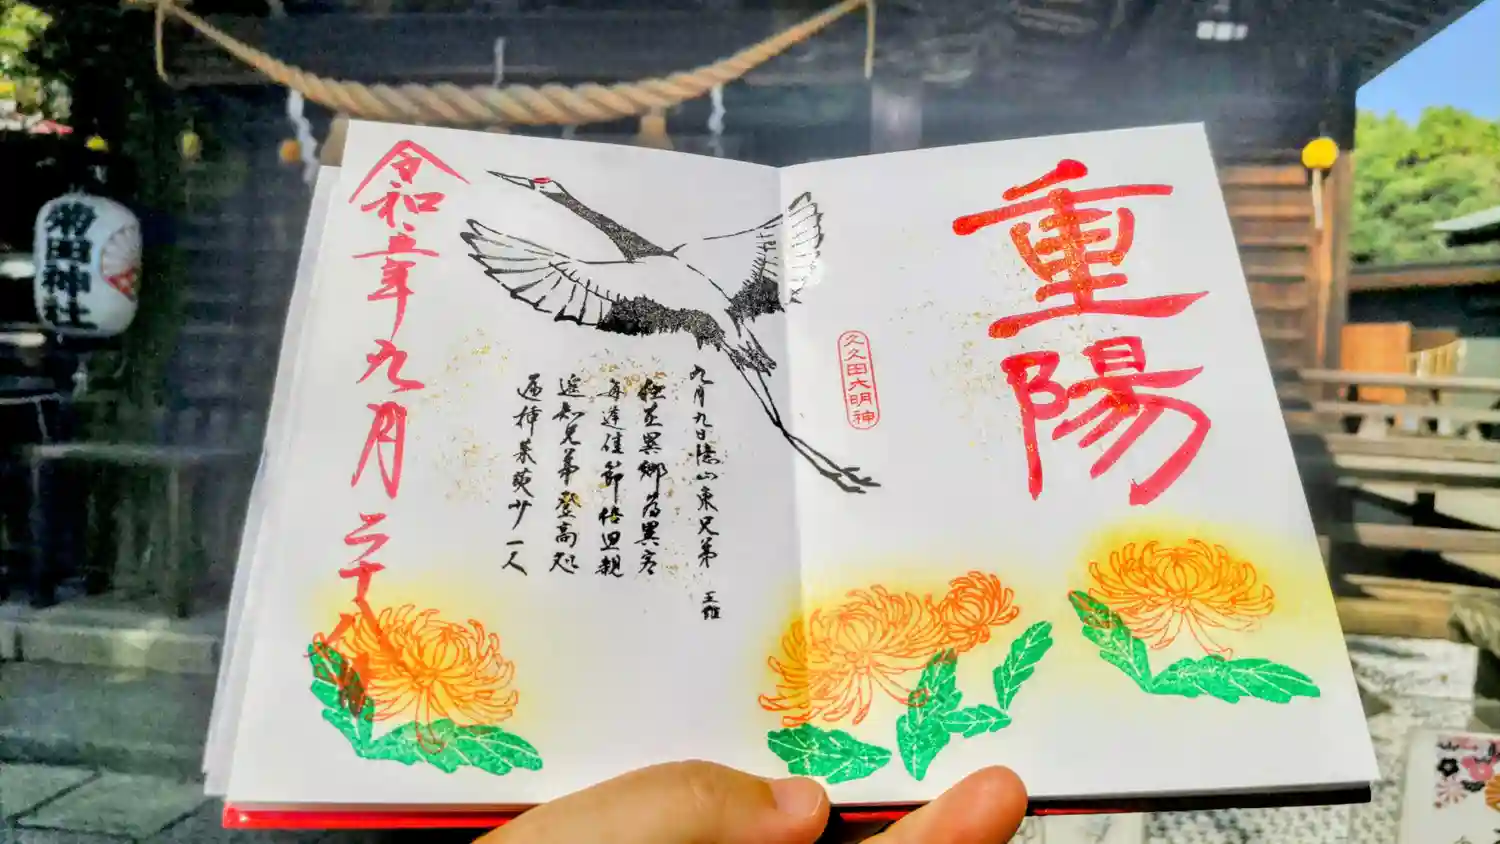 重陽
久久田大明神
九月九日憶山東兄弟 王維
独在異郷為異客
毎逢佳節倍思親
遥知兄弟登高処
遍挿茱萸少一人
令和三年九月二十八日
菊田神社